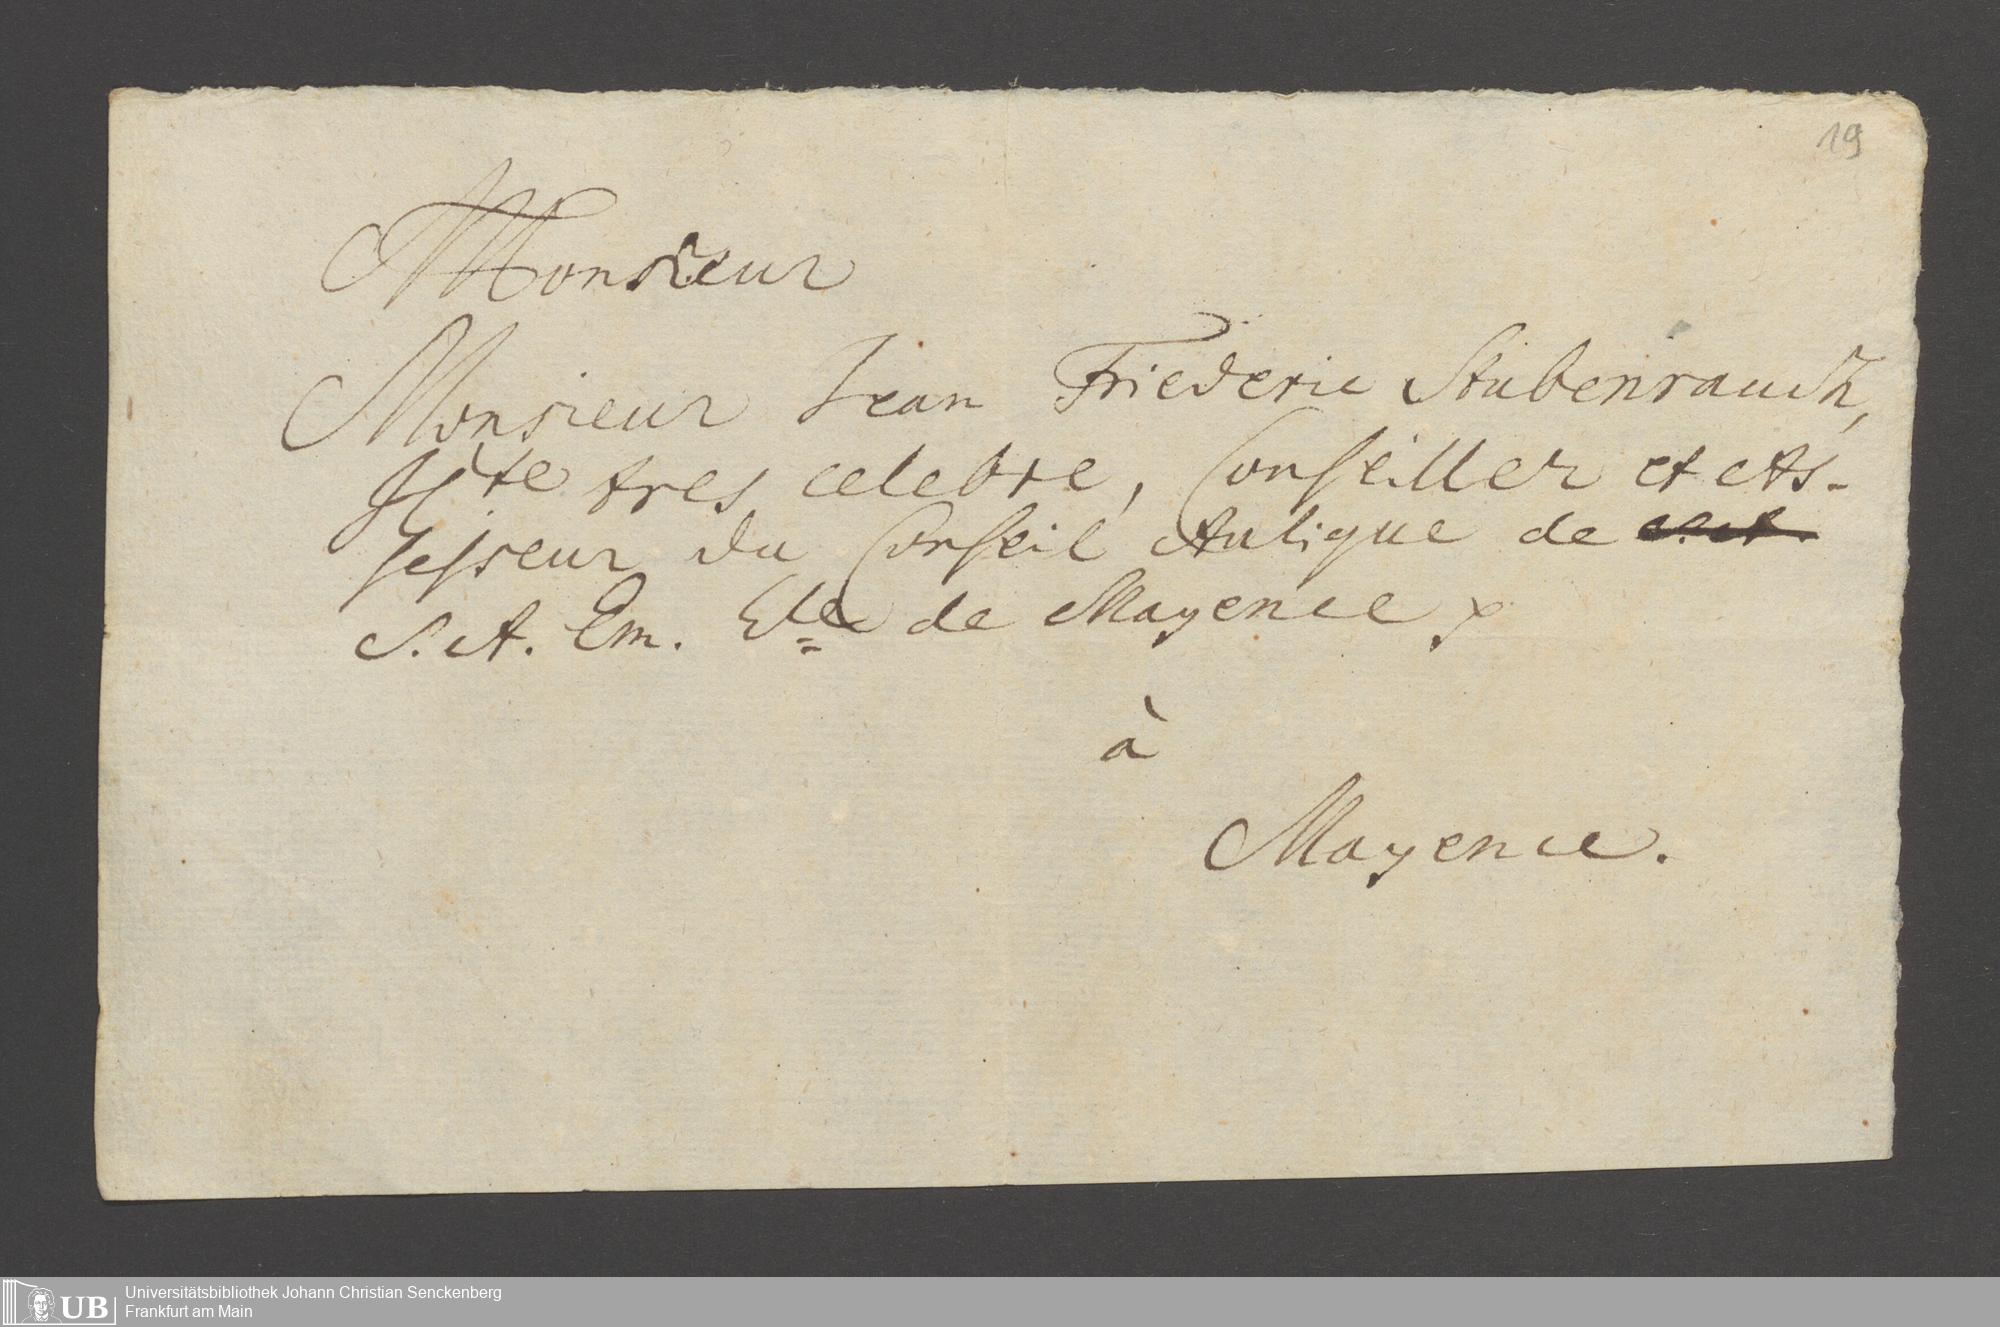 19
Monsieur
Monsieur Jean Friederic Stubenrauch,
tres celebre, Conseiller et As-
sesseur du Conseil Aulique de
S. A. Em. Ele de Mayence
à
Mayence.
UB
Universitätsbibliothek Johann Christian Senckenberg
Frankfurt am Main